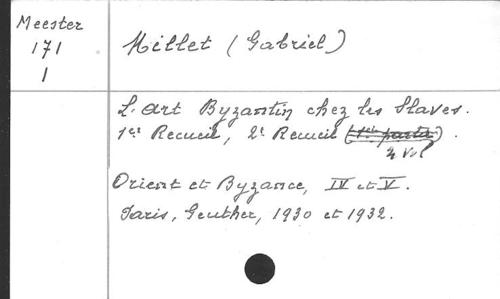 Meester
171
1
Millet (Gabriel)
L'art Byzantin chez les Slaves.
1er Recueil, 2e Recueil (1ere partie).
2 vol
Orient et Byzance, IV et V.
Paris, Geuthner, 1930 et 1932.